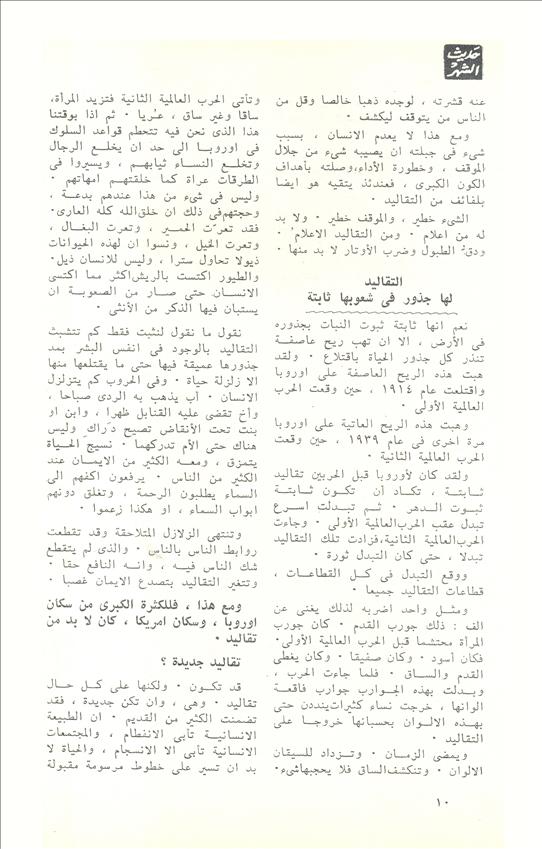 حديث
الشهر
عنه قشرته ، لوجده ذهبا خالصا وقل من
الناس من يتوقف ليكشف ٠
ومع هذا لا يعدم الانسان ، بسبب
شيء فى جبلته ان يصيبه شيء من جلال
الموقف ، وخطورة الأداء،وصلته بأهداف
الكون الكبرى ، فعندئذ يتقيه هو ايضا
بلفائف من التقاليد ٠
الشيء خطير ، والموقف خطير ٠ ولا بد
له من اعلام ٠ ومن التقاليد الاعلام ٠
ودق الطبول وضرب الأوتار لا بد منها ٠
التقاليد
لها جذور فى شعوبها ثابتة
نعم انها ثابتة ثبوت النبات بجذوره
فى الأرض ، الا ان تهب ريح عاصفة
تنذر كل جذور الحياة باقتلاع ٠ ولقد
هبت هذه الريح العاصفة على اوروبا
واقتلعت عام ١٩١٤ ، حين وقعت الحرب
العالمية الأولى ٠
وهبت هذه الريح العاتية على اوروبا
مرة اخرى فى عام ١٩٣٩ ، حين وقعت
الحرب العالمية الثانية ٠
ولقد كان لأوروبا قبل الحربين تقاليد
ثـابتـة ، تكـاد أن تكـون ثـابتـة
ثبـوت الـدهر ٠ ثـم تبـدلت اسـرع
تبدل عقب الحرب العالمية الأولى ٠ وجاءت
الحرب العالمية الثانية،فزادت تلك التقاليد
تبدلا ، حتى كان التبدل ثورة ٠
ووقع التبدل فى كـل القطاعـات ،
قطاعات التقاليد جميعا ٠
ومثـل واحد اضربه لذلك يغنى عن
الف : ذلك جورب القدم ٠ كان جورب
المرأة محتشما قبل الحرب العالمية الأولى٠
فكان أسود ٠ وكان صفيقا ٠ وكان يغطى
القدم والسـاق ٠ فلمـا جاءت الحرب ،
وبـدلت بهذه الجوارب جوارب فاقعة
الوانها ، خرجت نساء كثيرات ينددن حتى
بهـذه الالـوان بحسبانها خروجـا على
التقاليد ٠
ويمضى الزمـان ٠ وتـزداد للسيقان
الالوان ٠ وتنكشف الساق فلا يحجبها شيء٠
وتأتى الحرب العالمية الثانية فتزيد المرأة،
ساقا وغير ساق ، عـُريا ٠ ثم اذا بوقتنا
هذا الذى نحن فيه تتحطم قواعد السلوك
فى اوروبـا الى حد ان يخلع الرجال
وتخلـع النسـاء ثيابهـم ، ويسيروا فى
الطرقات عراة كما خلقتهم امهاتهم ٠
وليس فى شيء من هذا عندهم بدعـة ٠
وحجتهم فى ذلك ان خلق الله كله العارى٠
فقد تعرّت الحمير ، وتعرت البغال ،
وتعرت الخيل ، ونسوا ان لهذه الحيوانات
ذيولا تحاول سترا ، وليس للانسان ذيل٠
والطيور اكتست بالريش اكثر مما اكتسى
الانسـان حتى صـار من الصعوبـة ان
يستبان فيها الذكر من الأنثى ٠
نقول ما نقول لنثبت فقط كم تتشبث
التقاليد بالوجود فى انفس البشر بمد
جذورها عميقة فيها حتى ما يقتلعها منها
الا زلزلة حياة ٠ وفى الحروب كم يتزلزل
الانسان ٠ أب يذهب به الردى صباحا ،
وأخ تقضى عليه القنابل ظهرا ، وابن او
بنت تحت الأنقاض تصيح دَراك وليس
هناك حتى الأم تدركهما ٠ نسيج الحياة
يتمزق ، ومعـه الكثير من الايمـان عند
الكثير من الناس ٠ يرفعون اكفهم الى
السماء يطلبون الرحمة ، وتغلق دونهم
ابواب السماء ، او هكذا زعموا ٠
وتنتهى الزلازل المتلاحقة وقد تقطعت
روابط الناس بالناس ٠ والذى لم يتقطع
شك الناس فيـه ، وانـه النافع حقا ٠
وتتغير التقاليد بتصدع الايمان غصبا ٠
ومع هذا ، فللكثرة الكبرى من سكان
اوروبا ، وسكان امريكا ، كان لا بد من
تقاليد ٠
تقاليد جديدة ؟
قد تكـون ٠ ولكنها على كـل حـال
تقاليد ٠ وهى ، وان تكن جديدة ، فقد
تضمنت الكثير من القديم ٠ ان الطبيعة
الانسانيـة تأبى الانفطام ، والمجتمعات
الانسانية تأبى الا الانسجام ، والحياة لا
بد ان تسير على خطوط مرسومة مقبولة
١٠